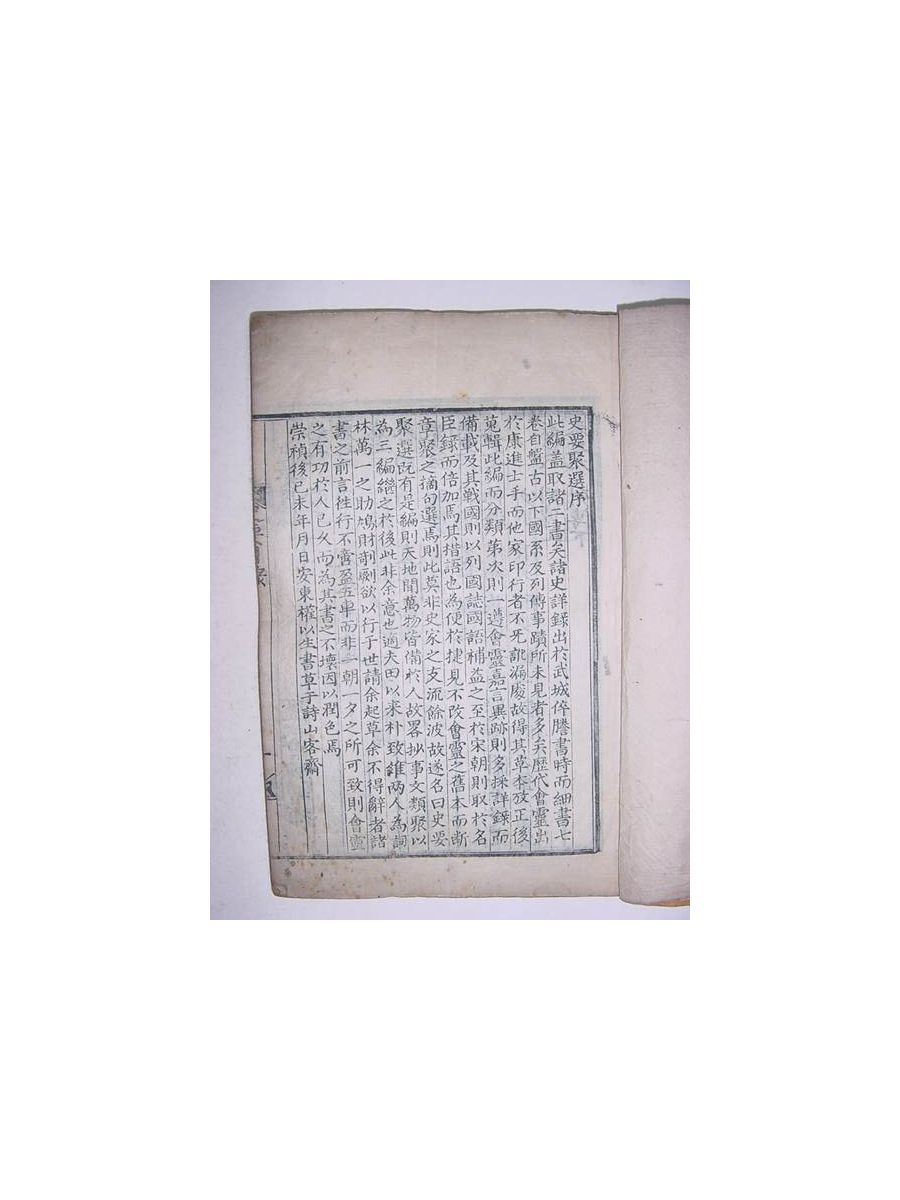 史要聚選序
此編盖取諸二書矣諸史詳錄出於武城倅謄書時而細書七
卷自盤古以下國系及列傳事蹟所未見者多矣歷代會靈出
於康進士手而他家印行者不死訛漏處故得其草本放正後
蒐輯此編而分類第次則一遵會靈嘉言異跡則多採詳錄而
備載及其戰國則以列國誌國語補益之至於宋朝則取於名
臣錄而倍加焉其措語也為便於捷見不改會靈之舊本而斷
章聚之摘句選焉則此莫非史家之支流餘波故遂名曰史要
聚選旣有是編則天地間萬物皆備於人故畧抄事文類聚以
為三編繼之於後此非余意也適夫田以采朴致維兩人為詞
林萬一之助鳩財剞劂欲以行于世請余起草余不得辭者諸
書之前言徃行不啻盈五車而非一朝一夕之所可致則會靈
之有功於人已久而為其書之不壞因以潤色焉
崇禎後己未年月日安東權以生書草于詩山客齋